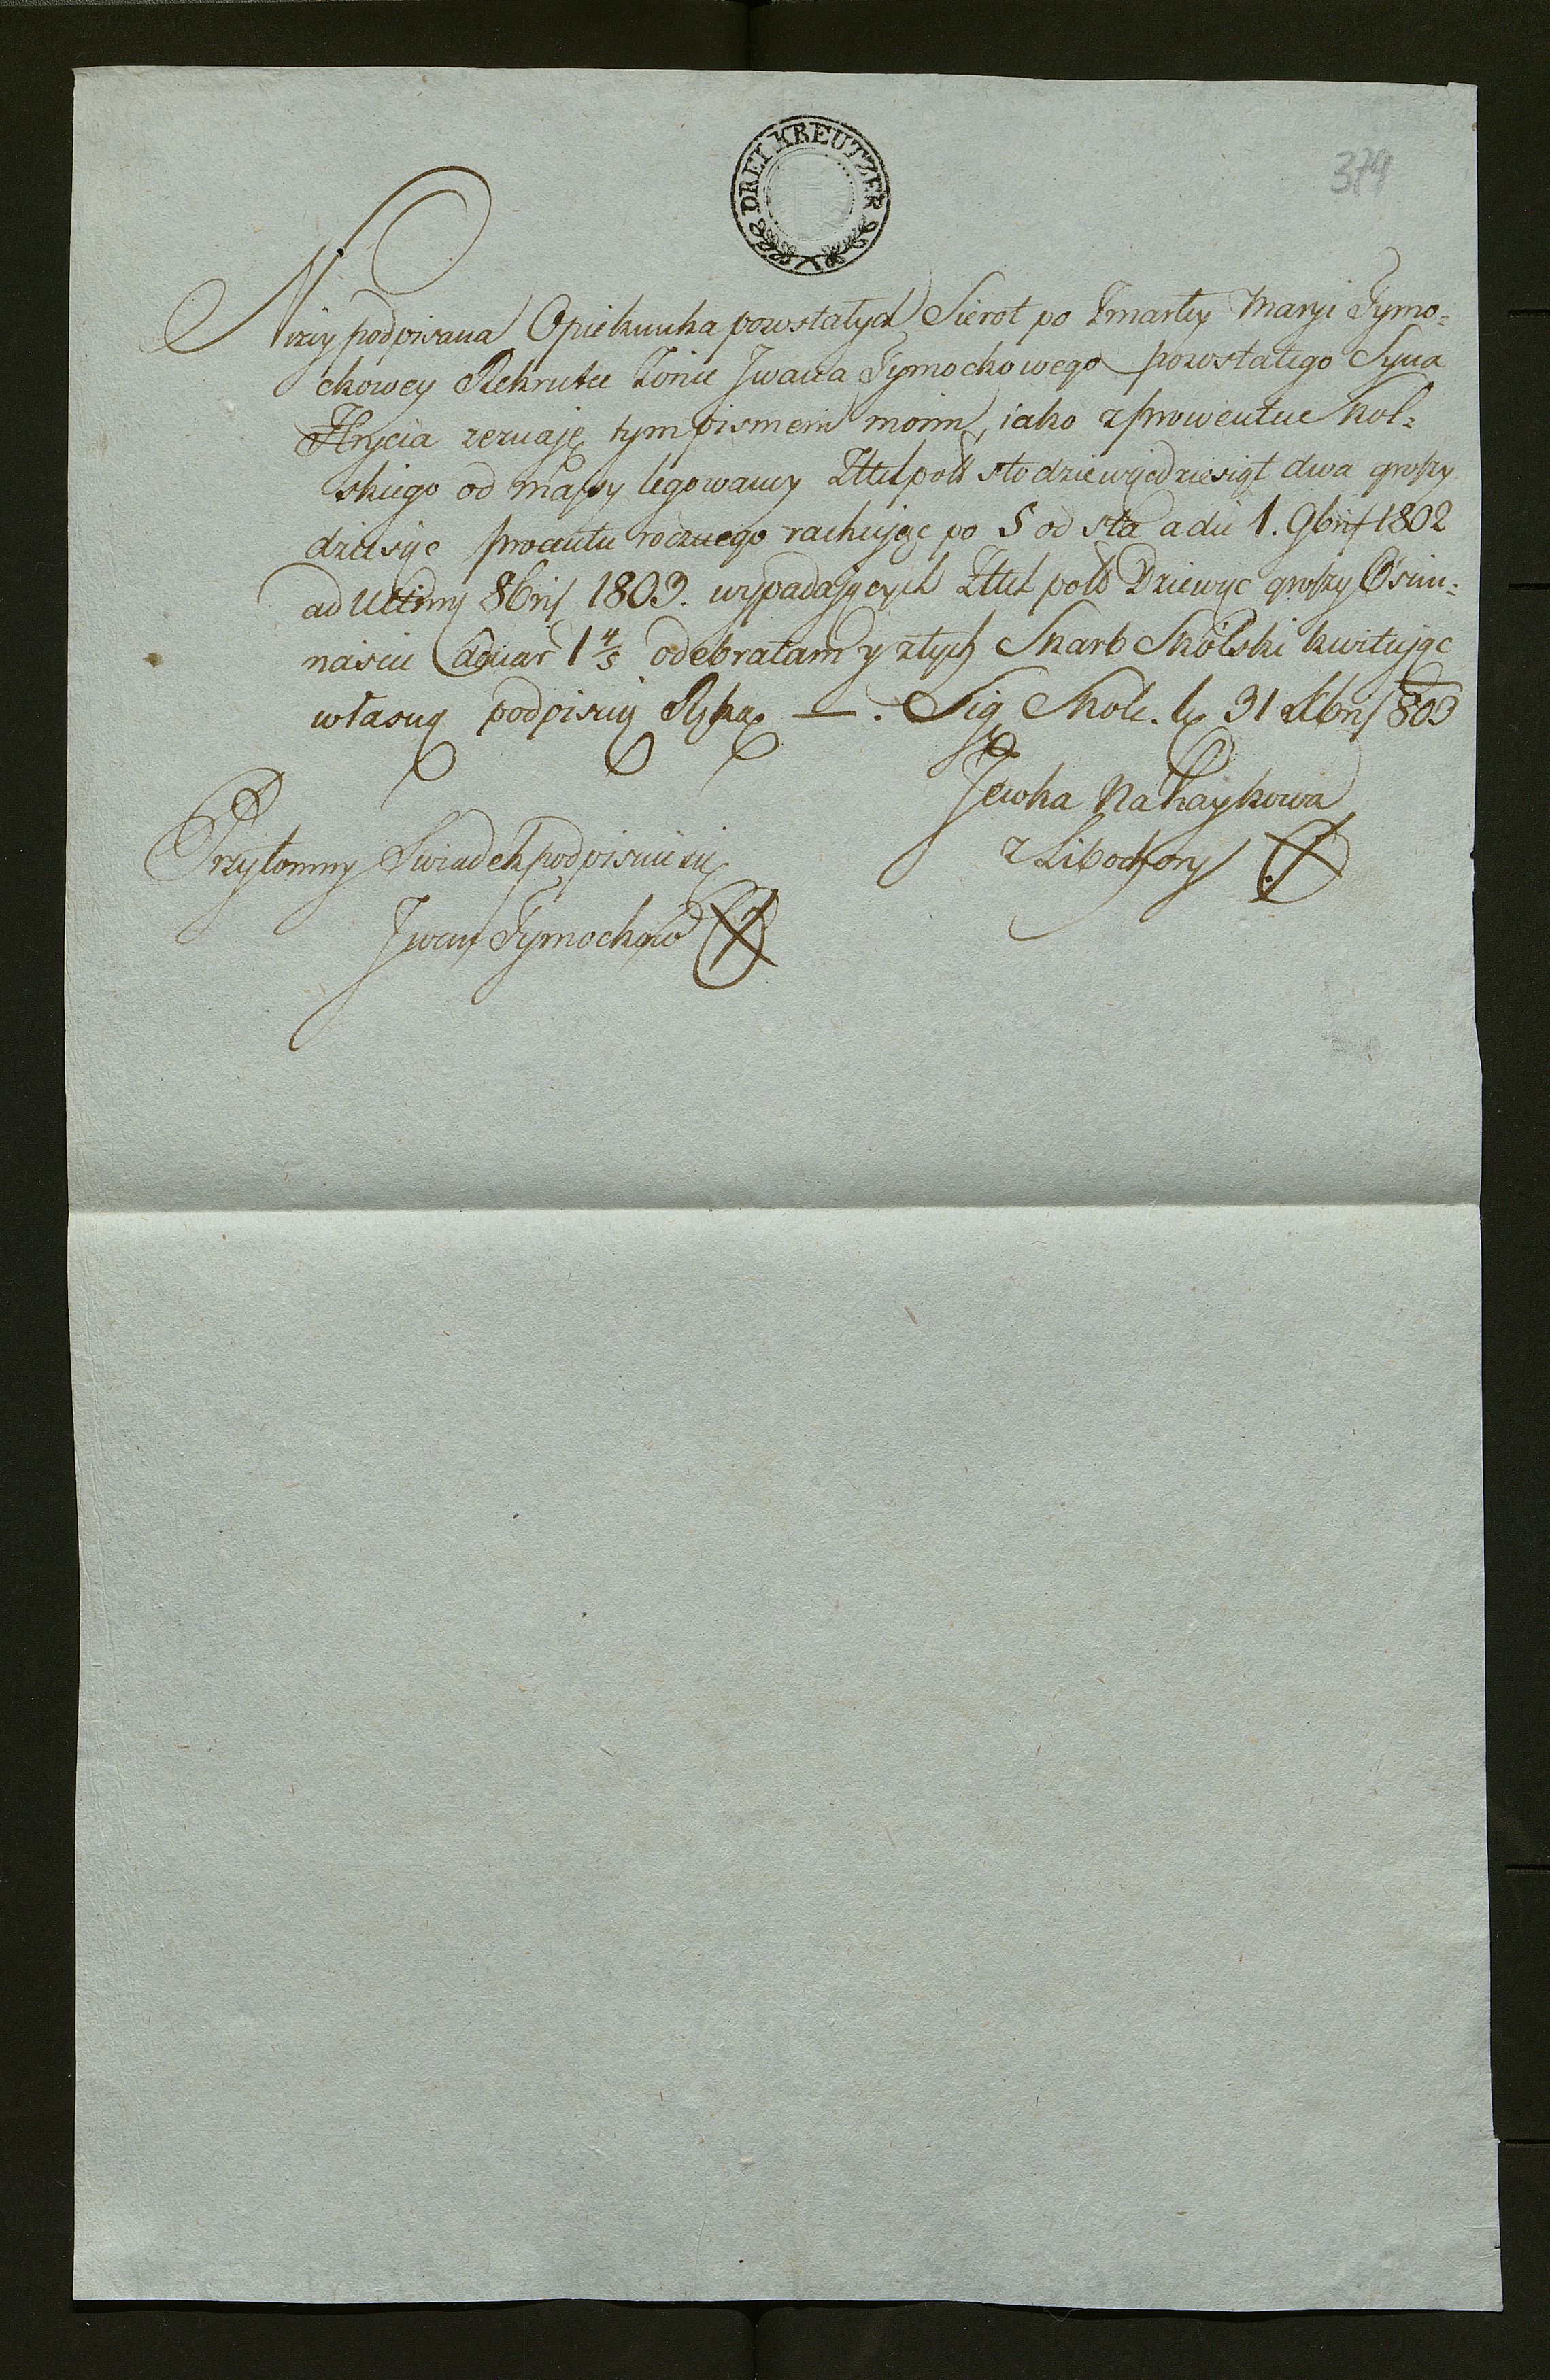 DREI KREUTZER
374
Niżey podpisana Opiekunka powstałych Sierot po Zmarłey Maryi Tymo=
chowey Rekrutce Zonie Jwana Tymochowego powstałego Syna
Hrycia zeznaję tym pismem moim, iako z prowentue Skol=
skiego od massy legowaney Złłch poll sto dziewięcdziesiąt dwa groszy
dziesięc procentu rocznego rachując po 5 od sta a die 1. 9bris 1802
ad Ultimą 8bris 1803. wypadających Złłch poll Dziewięc groszy Osim=
nascie 1 4/5 odebrałam y ztych Skarb Skólski kwitując
własną podpisuię Ręką —. Sig Skole. d. 31 Xbris 803
Jewka Nahaykowa
z Libochory
Przytomny Swiadek podpisuie się
Jwan Tymochow